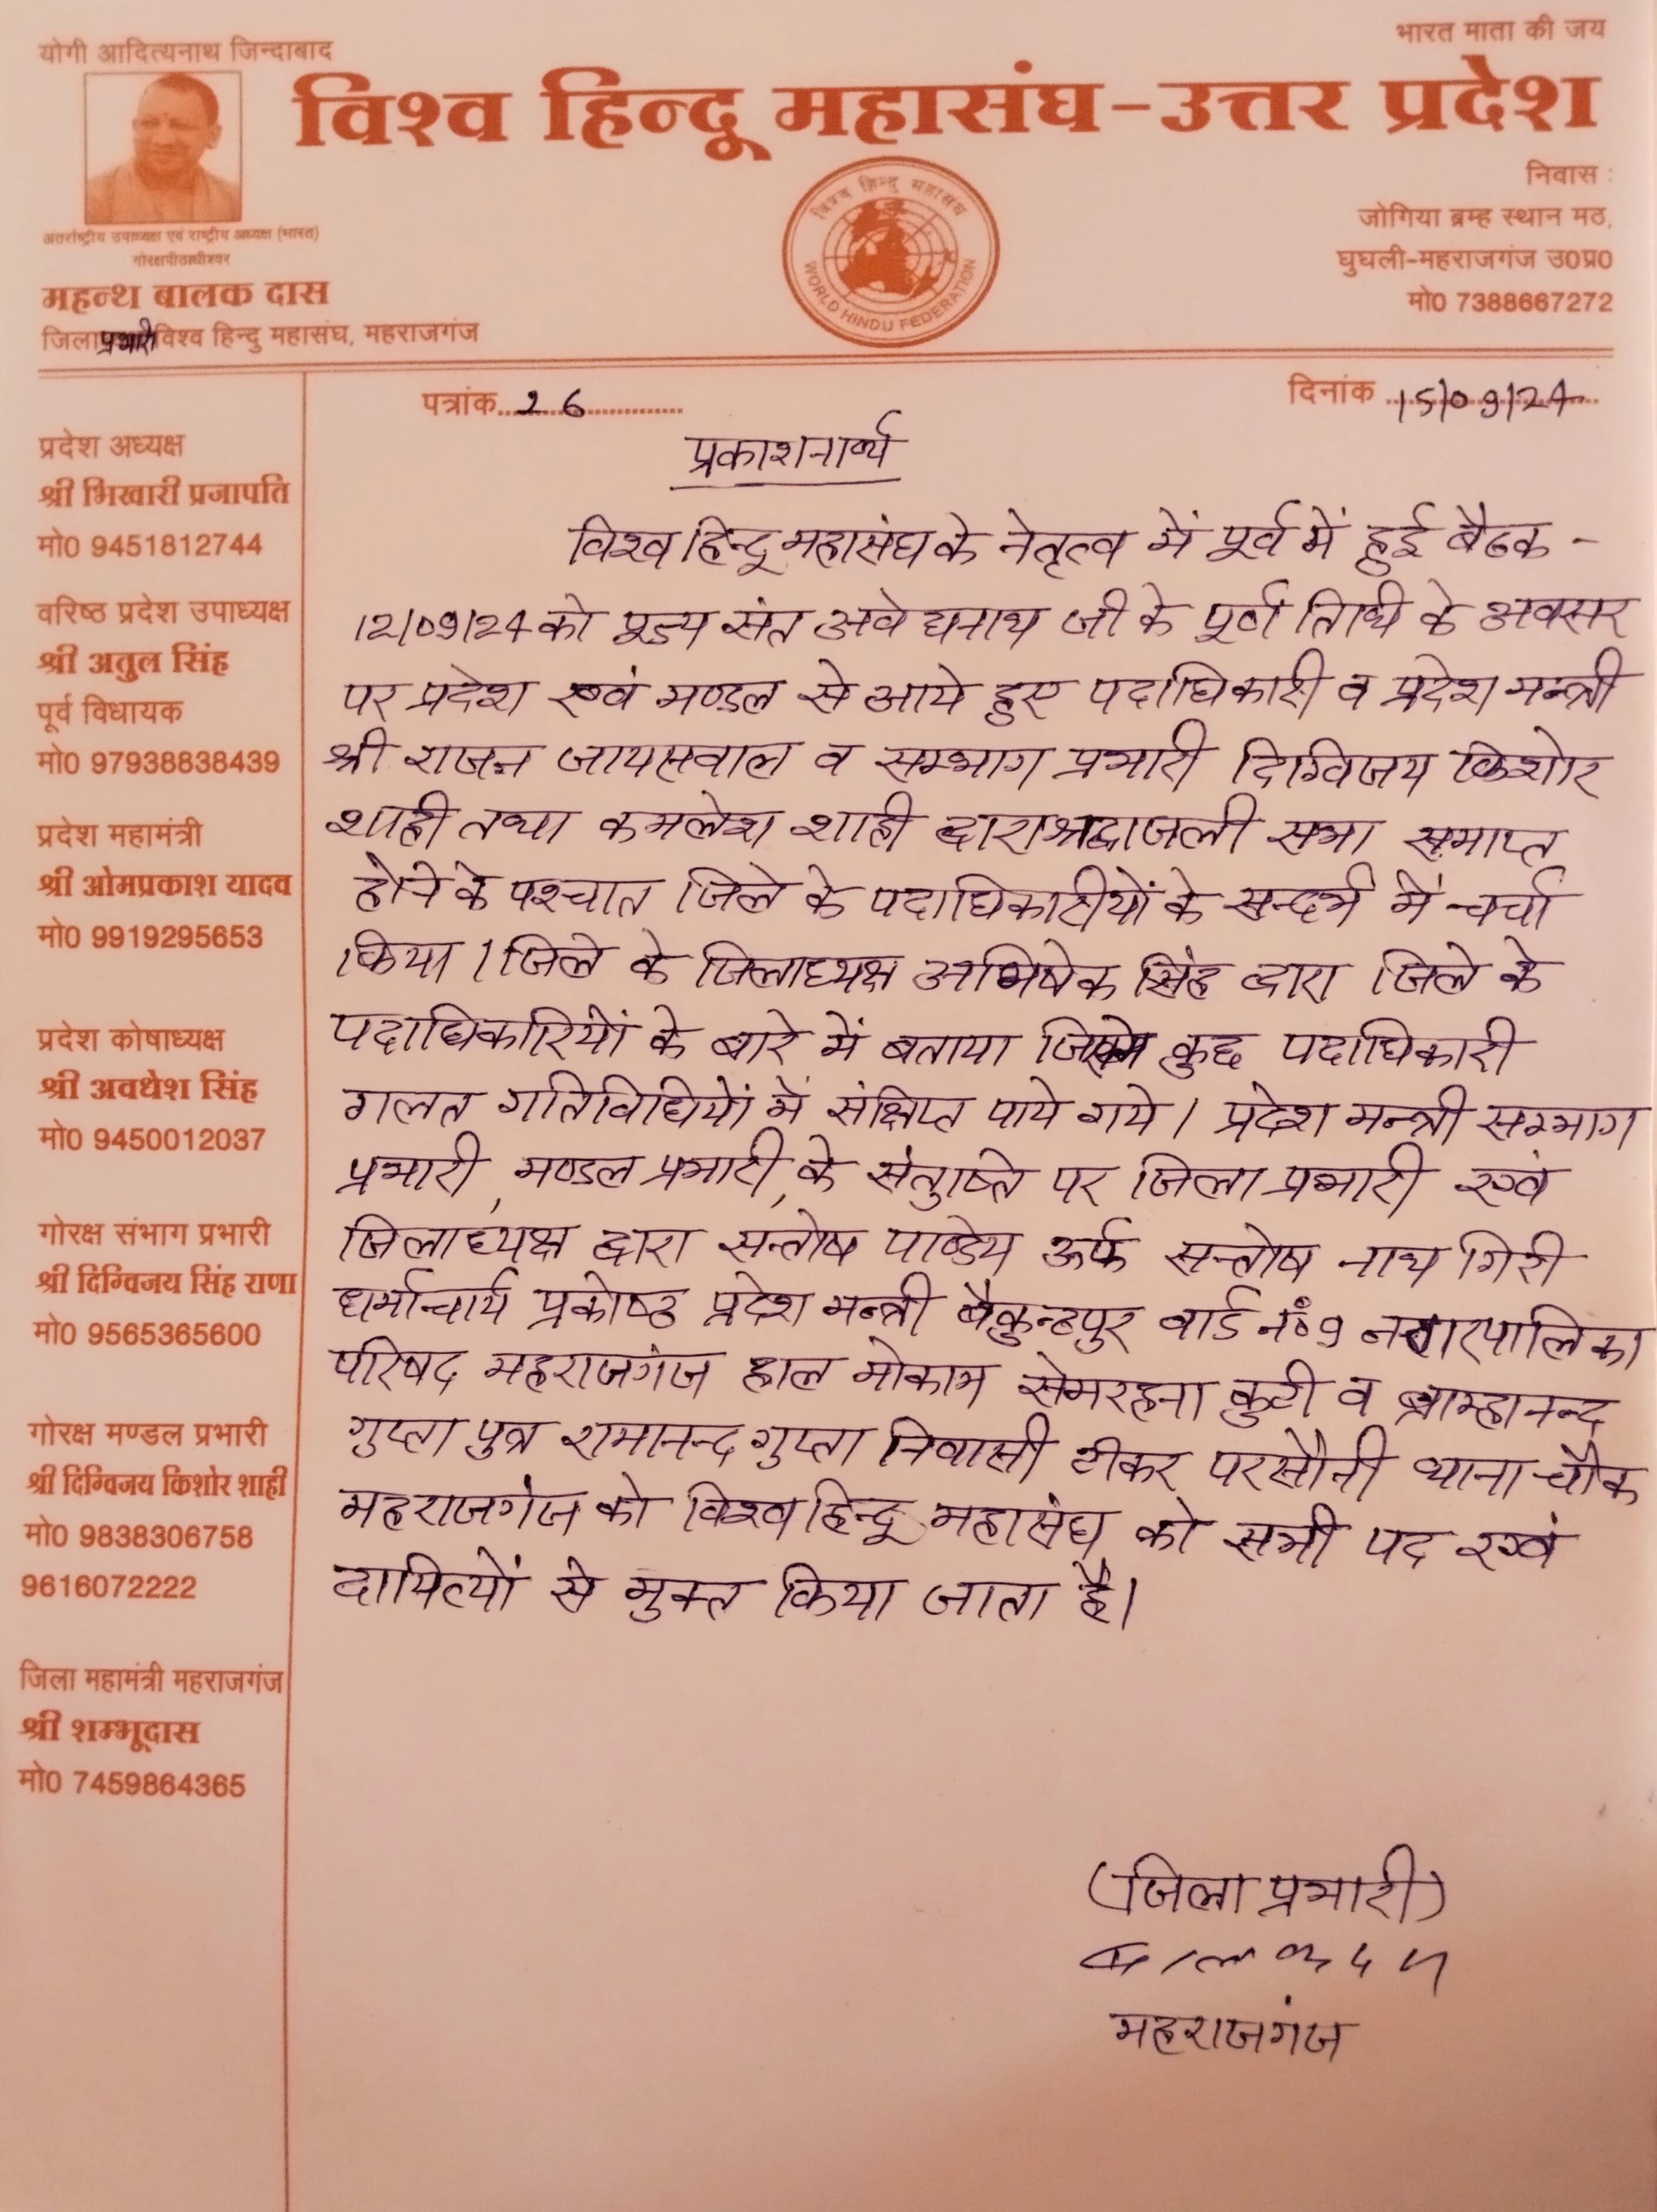 योगी आदित्यनाथ जिन्दाबाद
भारत माता की जय
विश्व हिन्दू महासंघ-उत्तर प्रदेश
अंतर्राष्ट्रीय उपाध्यक्ष एवं राष्ट्रीय अध्यक्ष (भारत)
गोरक्षपीठाधीश्वर
महन्थ बालक दास
जिला प्रभारी विश्व हिन्दु महासंघ, महराजगंज
विश्व हिन्दु महासंघ
WORLD HINDU FEDERATION
निवास :
जोगिया ब्रम्ह स्थान मठ,
घुघली-महराजगंज उ0प्र0
मो0 7388667272
पत्रांक 26
दिनांक 15/09/24
प्रदेश अध्यक्ष
श्री भिखारी प्रजापति
मो0 9451812744
वरिष्ठ प्रदेश उपाध्यक्ष
श्री अतुल सिंह
पूर्व विधायक
मो0 97938838439
प्रदेश महामंत्री
श्री ओमप्रकाश यादव
मो0 9919295653
प्रदेश कोषाध्यक्ष
श्री अवधेश सिंह
मो0 9450012037
गोरक्ष संभाग प्रभारी
श्री दिग्विजय सिंह राणा
मो0 9565365600
गोरक्ष मण्डल प्रभारी
श्री दिग्विजय किशोर शाही
मो0 9838306758
9616072222
जिला महामंत्री महराजगंज
श्री शम्भूदास
मो0 7459864365
प्रकाशनार्थ
विश्व हिन्दू महासंघ के नेतृत्व में पूर्व में हुई बैठक -
12/09/24 को पूज्य संत अवेद्यनाथ जी के पूर्ण तिथि के अवसर
पर प्रदेश एवं मण्डल से आये हुए पदाधिकारी व प्रदेश मन्त्री
श्री राजन जायसवाल व सम्भाग प्रभारी दिग्विजय किशोर
शाही तथा कमलेश शाही द्वारा श्रद्धाजली सभा समाप्त
होने के पश्चात जिले के पदाधिकारीयों के सन्दर्भ में चर्चा
किया। जिले के जिलाध्यक्ष अभिषेक सिंह द्वारा जिले के
पदाधिकारियों के बारे में बताया जिसमे कुछ पदाधिकारी
गलत गतिविधियों में संक्षिप्त पाये गये। प्रदेश मन्त्री सम्भाग
प्रभारी, मण्डल प्रभारी, के संतुष्ति पर जिला प्रभारी एवं
जिलाध्यक्ष द्वारा सन्तोष पाण्डेय ऊर्फ सन्तोष नाथ गिरी
धर्माचार्य प्रकोष्ठ प्रदेश मन्त्री बैकुन्ठपुर वार्ड नं० 9 नगरपालिका
परिषद महराजगंज हाल मोकाम सेमरहना कुटी व ब्राम्हानन्द
गुप्ता पुत्र रामानन्द गुप्ता निवासी टीकर परसौनी थाना चौक
महराजगंज को विश्व हिन्दू महासंघ को सभी पद एवं
दायित्यों से मुक्त किया जाता है।
(जिला प्रभारी)
महराजगंज